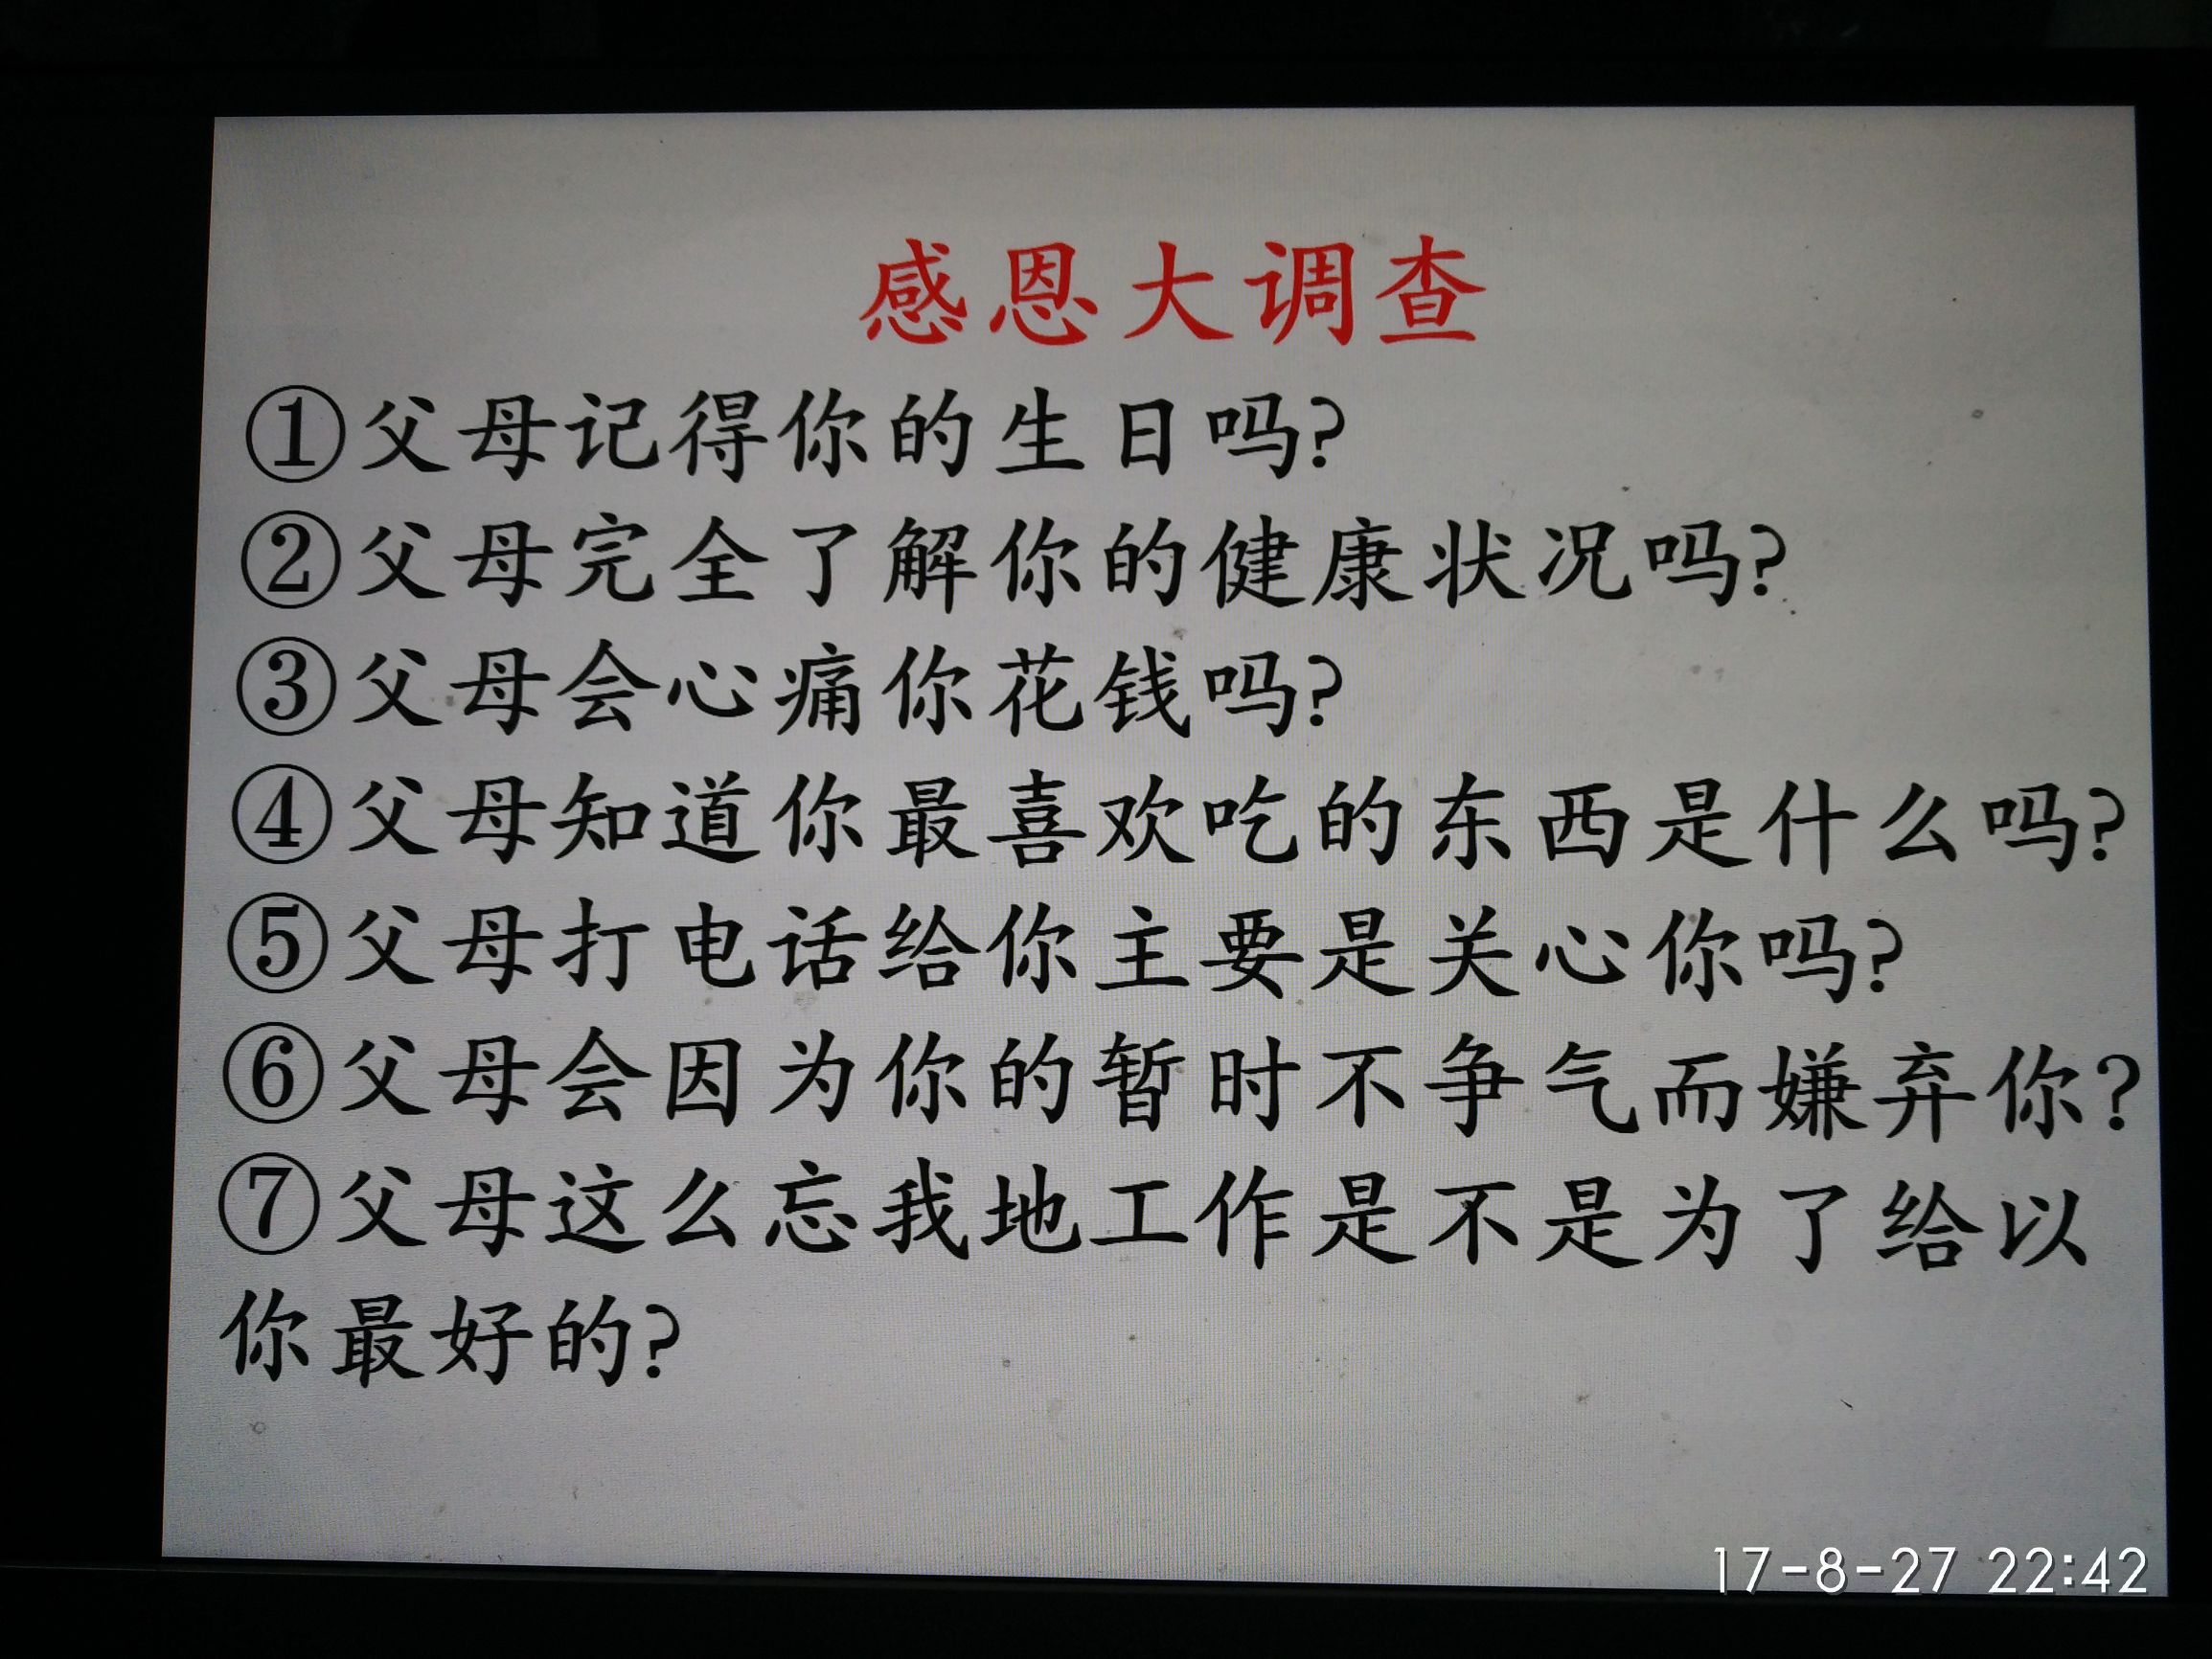 感恩大调查
①父母记得你的生日吗?
②父母完全了解你的健康状况吗?
③父母会心痛你花钱吗?
④父母知道你最喜欢吃的东西是什么吗?
⑤父母打电话给你主要是关心你吗?
⑥父母会因为你的暂时不争气而嫌弃你?
⑦父母这么忘我地工作是不是为了给以
你最好的?
17-8-27 22:42